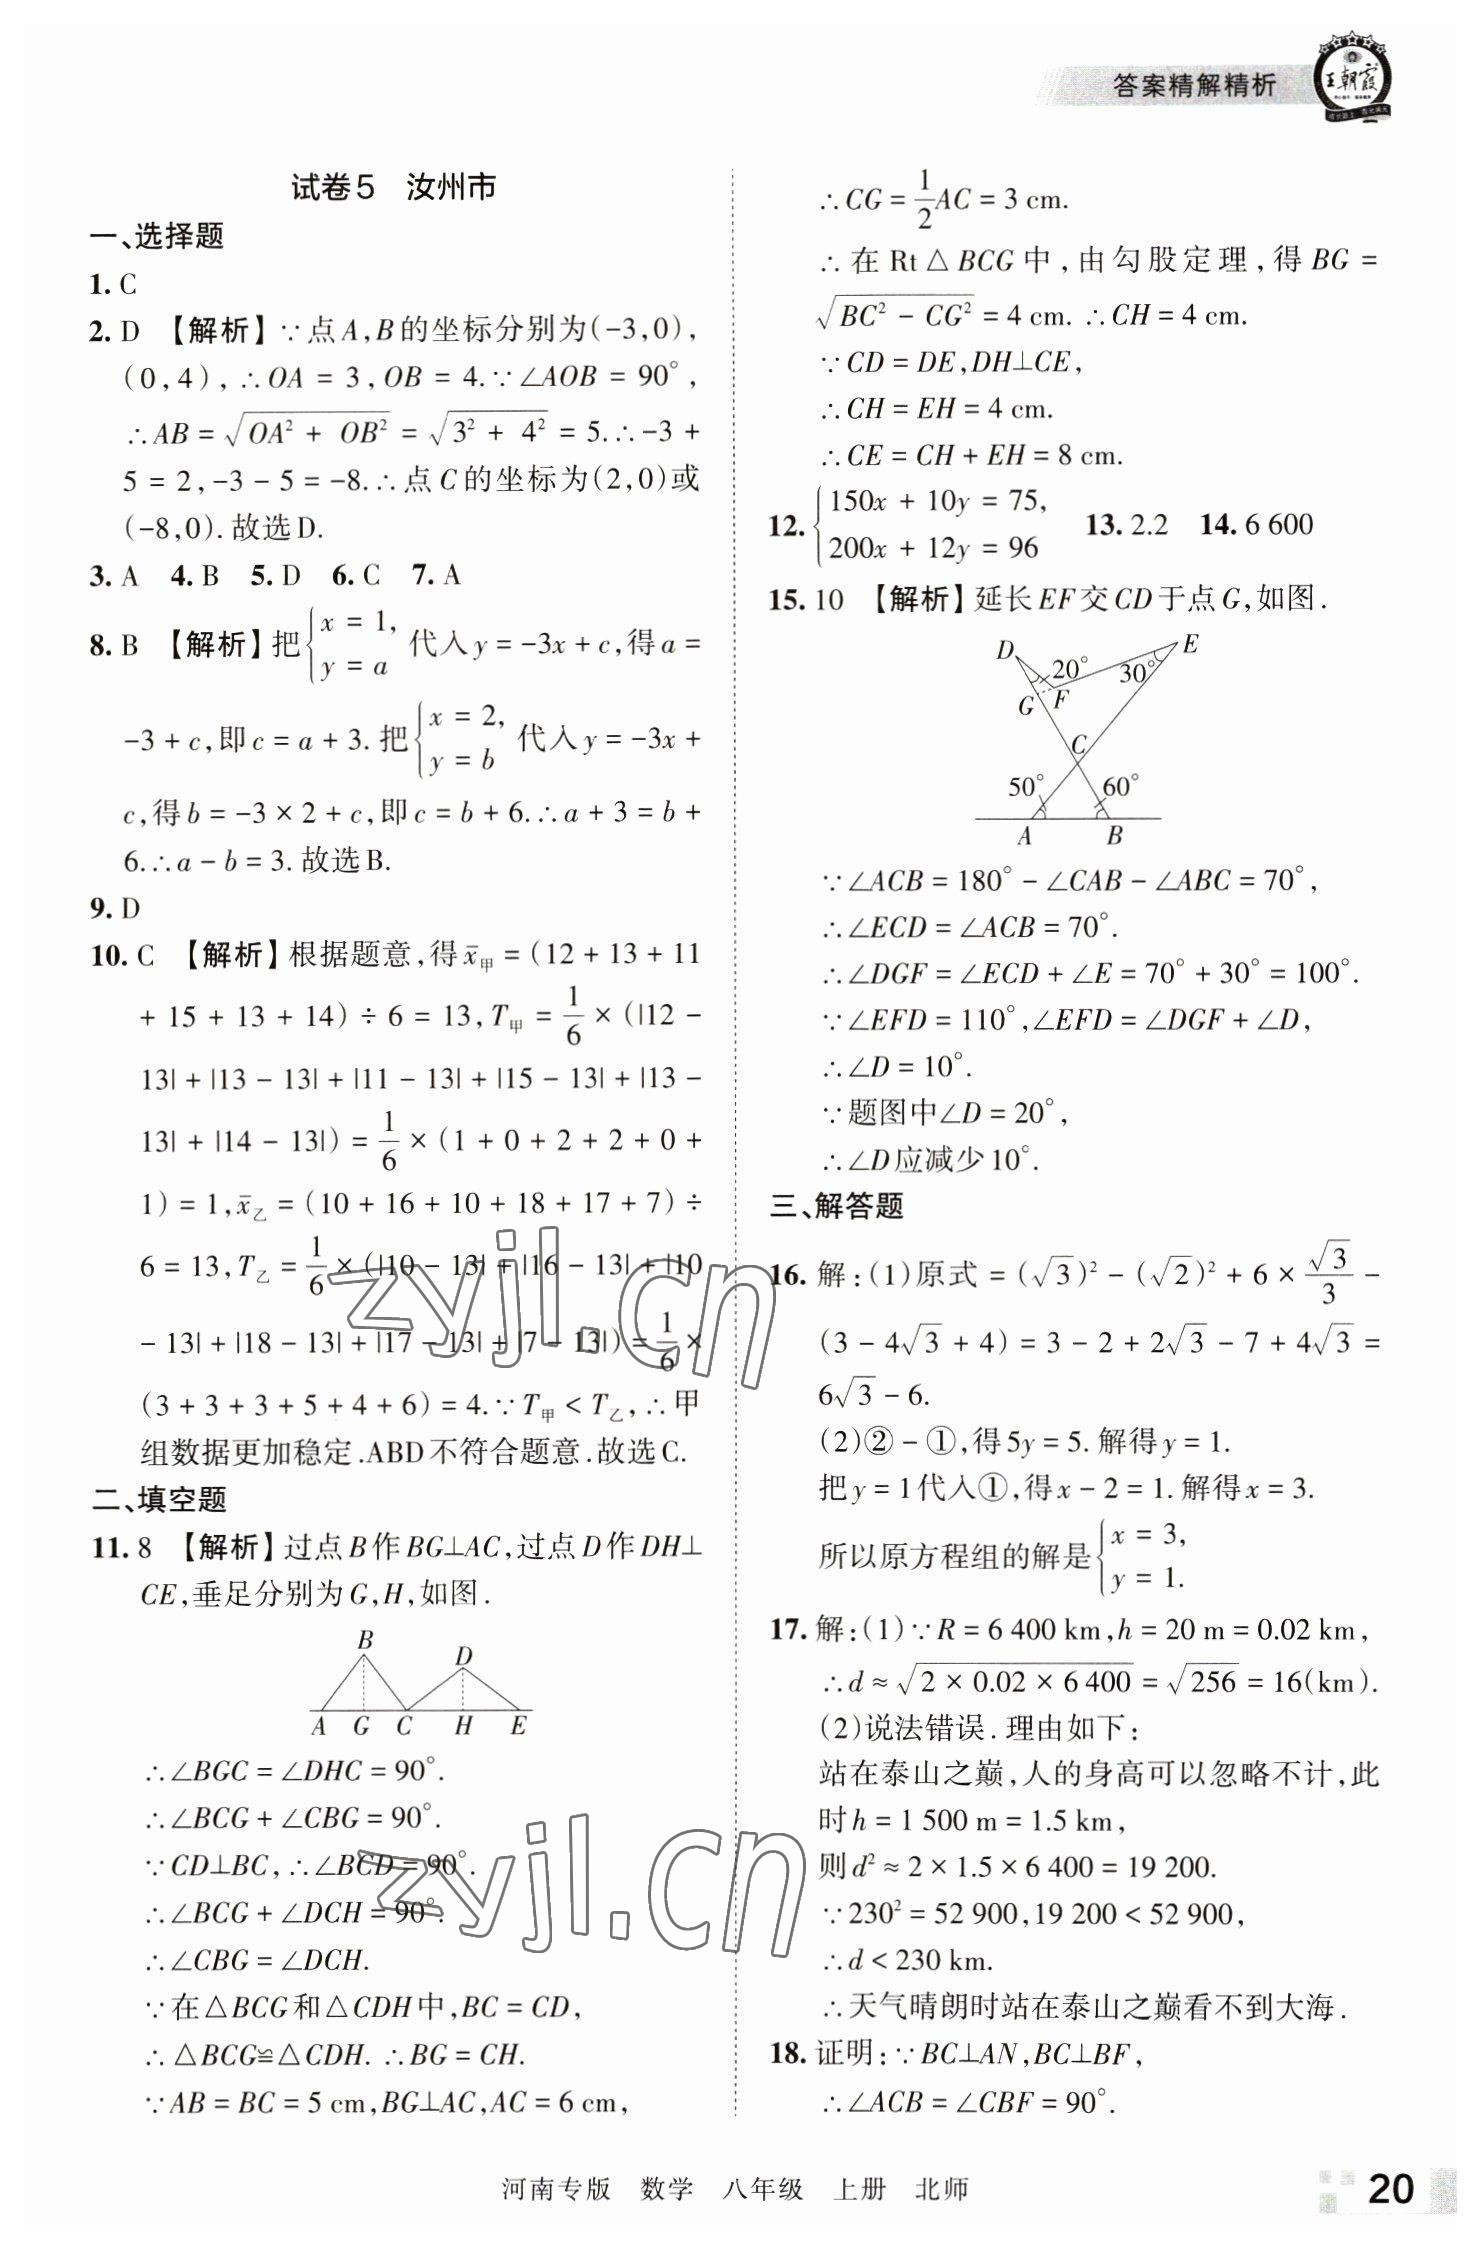 答案精解精析
王朝霞
试卷5 汝州市
一、选择题
1. C
2. D 【解析】∵点A,B的坐标分别为(-3,0),
(0,4),∴OA = 3,OB = 4.∵∠AOB = 90°,
∴AB = √(OA² + OB²) = √(3² + 4²) = 5.∴-3 +
5 = 2,-3 - 5 = -8.∴点C的坐标为(2,0)或
(-8,0).故选D.
3. A 4. B 5. D 6. C 7. A
8. B 【解析】把{x = 1, y = a 代入y = -3x + c,得a =
-3 + c,即c = a + 3.把{x = 2, y = b 代入y = -3x +
c,得b = -3 × 2 + c,即c = b + 6.∴a + 3 = b +
6.∴a - b = 3.故选B.
9. D
10. C 【解析】根据题意,得x̄甲 = (12 + 13 + 11
+ 15 + 13 + 14) ÷ 6 = 13,T甲 = 1/6 × (|12 -
13| + |13 - 13| + |11 - 13| + |15 - 13| + |13 -
13| + |14 - 13|) = 1/6 × (1 + 0 + 2 + 2 + 0 +
1) = 1,x̄乙 = (10 + 16 + 10 + 18 + 17 + 7) ÷
6 = 13,T乙 = 1/6 × (|10 - 13| + |16 - 13| + |10
- 13| + |18 - 13| + |17 - 13| + |7 - 13|) = 1/6 ×
(3 + 3 + 3 + 5 + 4 + 6) = 4.∵T甲 < T乙,∴甲
组数据更加稳定.ABD不符合题意.故选C.
二、填空题
11. 8 【解析】过点B作BG⊥AC,过点D作DH⊥
CE,垂足分别为G,H,如图.
B D
A G C H E
∴∠BGC = ∠DHC = 90°.
∴∠BCG + ∠CBG = 90°.
∵CD⊥BC,∴∠BCD = 90°.
∴∠BCG + ∠DCH = 90°.
∴∠CBG = ∠DCH.
∵在△BCG和△CDH中,BC = CD,
∴△BCG≌△CDH.∴BG = CH.
∵AB = BC = 5 cm,BG⊥AC,AC = 6 cm,
∴CG = 1/2 AC = 3 cm.
∴在Rt△BCG中,由勾股定理,得BG =
√(BC² - CG²) = 4 cm.∴CH = 4 cm.
∵CD = DE,DH⊥CE,
∴CH = EH = 4 cm.
∴CE = CH + EH = 8 cm.
12. {150x + 10y = 75, 200x + 12y = 96 13. 2.2 14. 6 600
15. 10 【解析】延长EF交CD于点G,如图.
D E
20° 30°
G F
C
50° 60°
A B
∵∠ACB = 180° - ∠CAB - ∠ABC = 70°,
∴∠ECD = ∠ACB = 70°.
∴∠DGF = ∠ECD + ∠E = 70° + 30° = 100°.
∵∠EFD = 110°,∠EFD = ∠DGF + ∠D,
∴∠D = 10°.
∵题图中∠D = 20°,
∴∠D应减少10°.
三、解答题
16. 解:(1)原式 = (√3)² - (√2)² + 6 × √3/3 -
(3 - 4√3 + 4) = 3 - 2 + 2√3 - 7 + 4√3 =
6√3 - 6.
(2)② - ①,得5y = 5.解得y = 1.
把y = 1代入①,得x - 2 = 1.解得x = 3.
所以原方程组的解是{x = 3, y = 1.
17. 解:(1)∵R = 6 400 km,h = 20 m = 0.02 km,
∴d ≈ √(2 × 0.02 × 6 400) = √256 = 16(km).
(2)说法错误.理由如下:
站在泰山之巅,人的身高可以忽略不计,此
时h = 1 500 m = 1.5 km,
则d² ≈ 2 × 1.5 × 6 400 = 19 200.
∵230² = 52 900,19 200 < 52 900,
∴d < 230 km.
∴天气晴朗时站在泰山之巅看不到大海.
18. 证明:∵BC⊥AN,BC⊥BF,
∴∠ACB = ∠CBF = 90°.
zyjl.cn
zyjl.cn
河南专版 数学 八年级 上册 北师
20